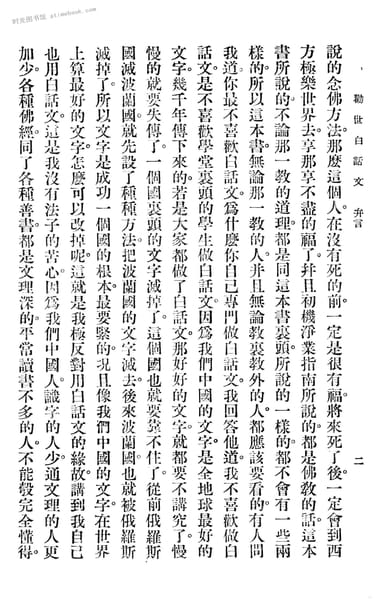 时光图书馆 atimebook.com
勸世白話文 弁言
二
說的念佛方法。那麽這個人在沒有死的前一定是很有福。將來死了後。一定會到西
方極樂世界去享那享不盡的福了。并且初機淨業指南所說的。都是佛教的話。這本
書所說的。不論那一教的道理。都是同這本書裏頭所說的一樣的。都不會有一些兩
樣的。所以這本書無論那一教的人。并且無論教裏教外的人。都應該要看的。有人問
我道。你最不喜歡白話文。爲什麽你自己專門做白話文。我回答他道。我不喜歡做白
話文。是不喜歡學堂裏頭的學生做白話文。因爲我們中國的文字。是全地球最好的
文字。幾千年傳下來的。若是大家都做了白話文。那好好的文字。就都要不講究了。慢
慢的就要失傳了。一個國裏頭的文字滅掉了。這個國也就要靠不住了。從前俄羅斯
國滅波蘭國。就先設了種種方法。把波蘭國的文字滅去。後來波蘭國也就被俄羅斯
滅掉了。所以文字是成功一個國的根本。最要緊的。況且像我們中國的文字。在世界
上算最好的文字。怎麽可以改掉呢。這就是我極反對用白話文的緣故。講到我自己
也用白話文。這是我沒有法子的苦心。因爲我們中國人。識字的人少。通文理的人更
加少。各種佛經。同了各種善書。都是文理深的。平常讀書不多的人。不能彀完全懂得。